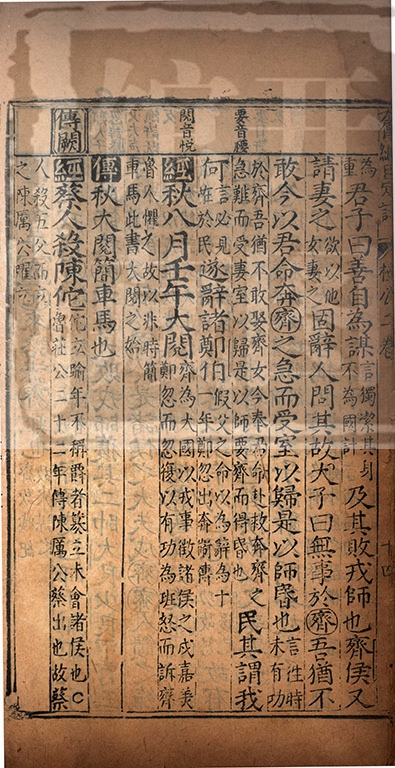 桓公二卷
為
重
君子曰善自為謀
言獨潔其身
不為國計
及其敗戎師也齊侯又
請妻之
欲以他
女妻之
固辭人問其故大子曰無事於齊吾猶不
敢今以君命奔齊之急而受室以歸是以師昏也
言性時
未有功
要音腰
於齊吾猶不敢娶齊女今奉君命赴救奔齊之
急難而受妻室以歸是以師要齊而得昏也
民其謂我
何
言必見
於民
遂辭諸鄭伯
假父之命以為辭為十
一年鄭忽出奔衛傳
閱音悅
經秋八月壬午大閱
齊為大國以戎事徵諸侯之戍嘉美
鄭忽而忽復以有功為班怒而訴齊
魯人懼之故以非時簡
車馬此書大閱之始
傳秋大閱簡車馬也
經蔡人殺陳佗
佗立踰年不稱爵者篡立未會諸侯也
魯莊公二十二年傳陳厲公蔡出也故蔡
傳闕
人殺五父而立
之陳厲公